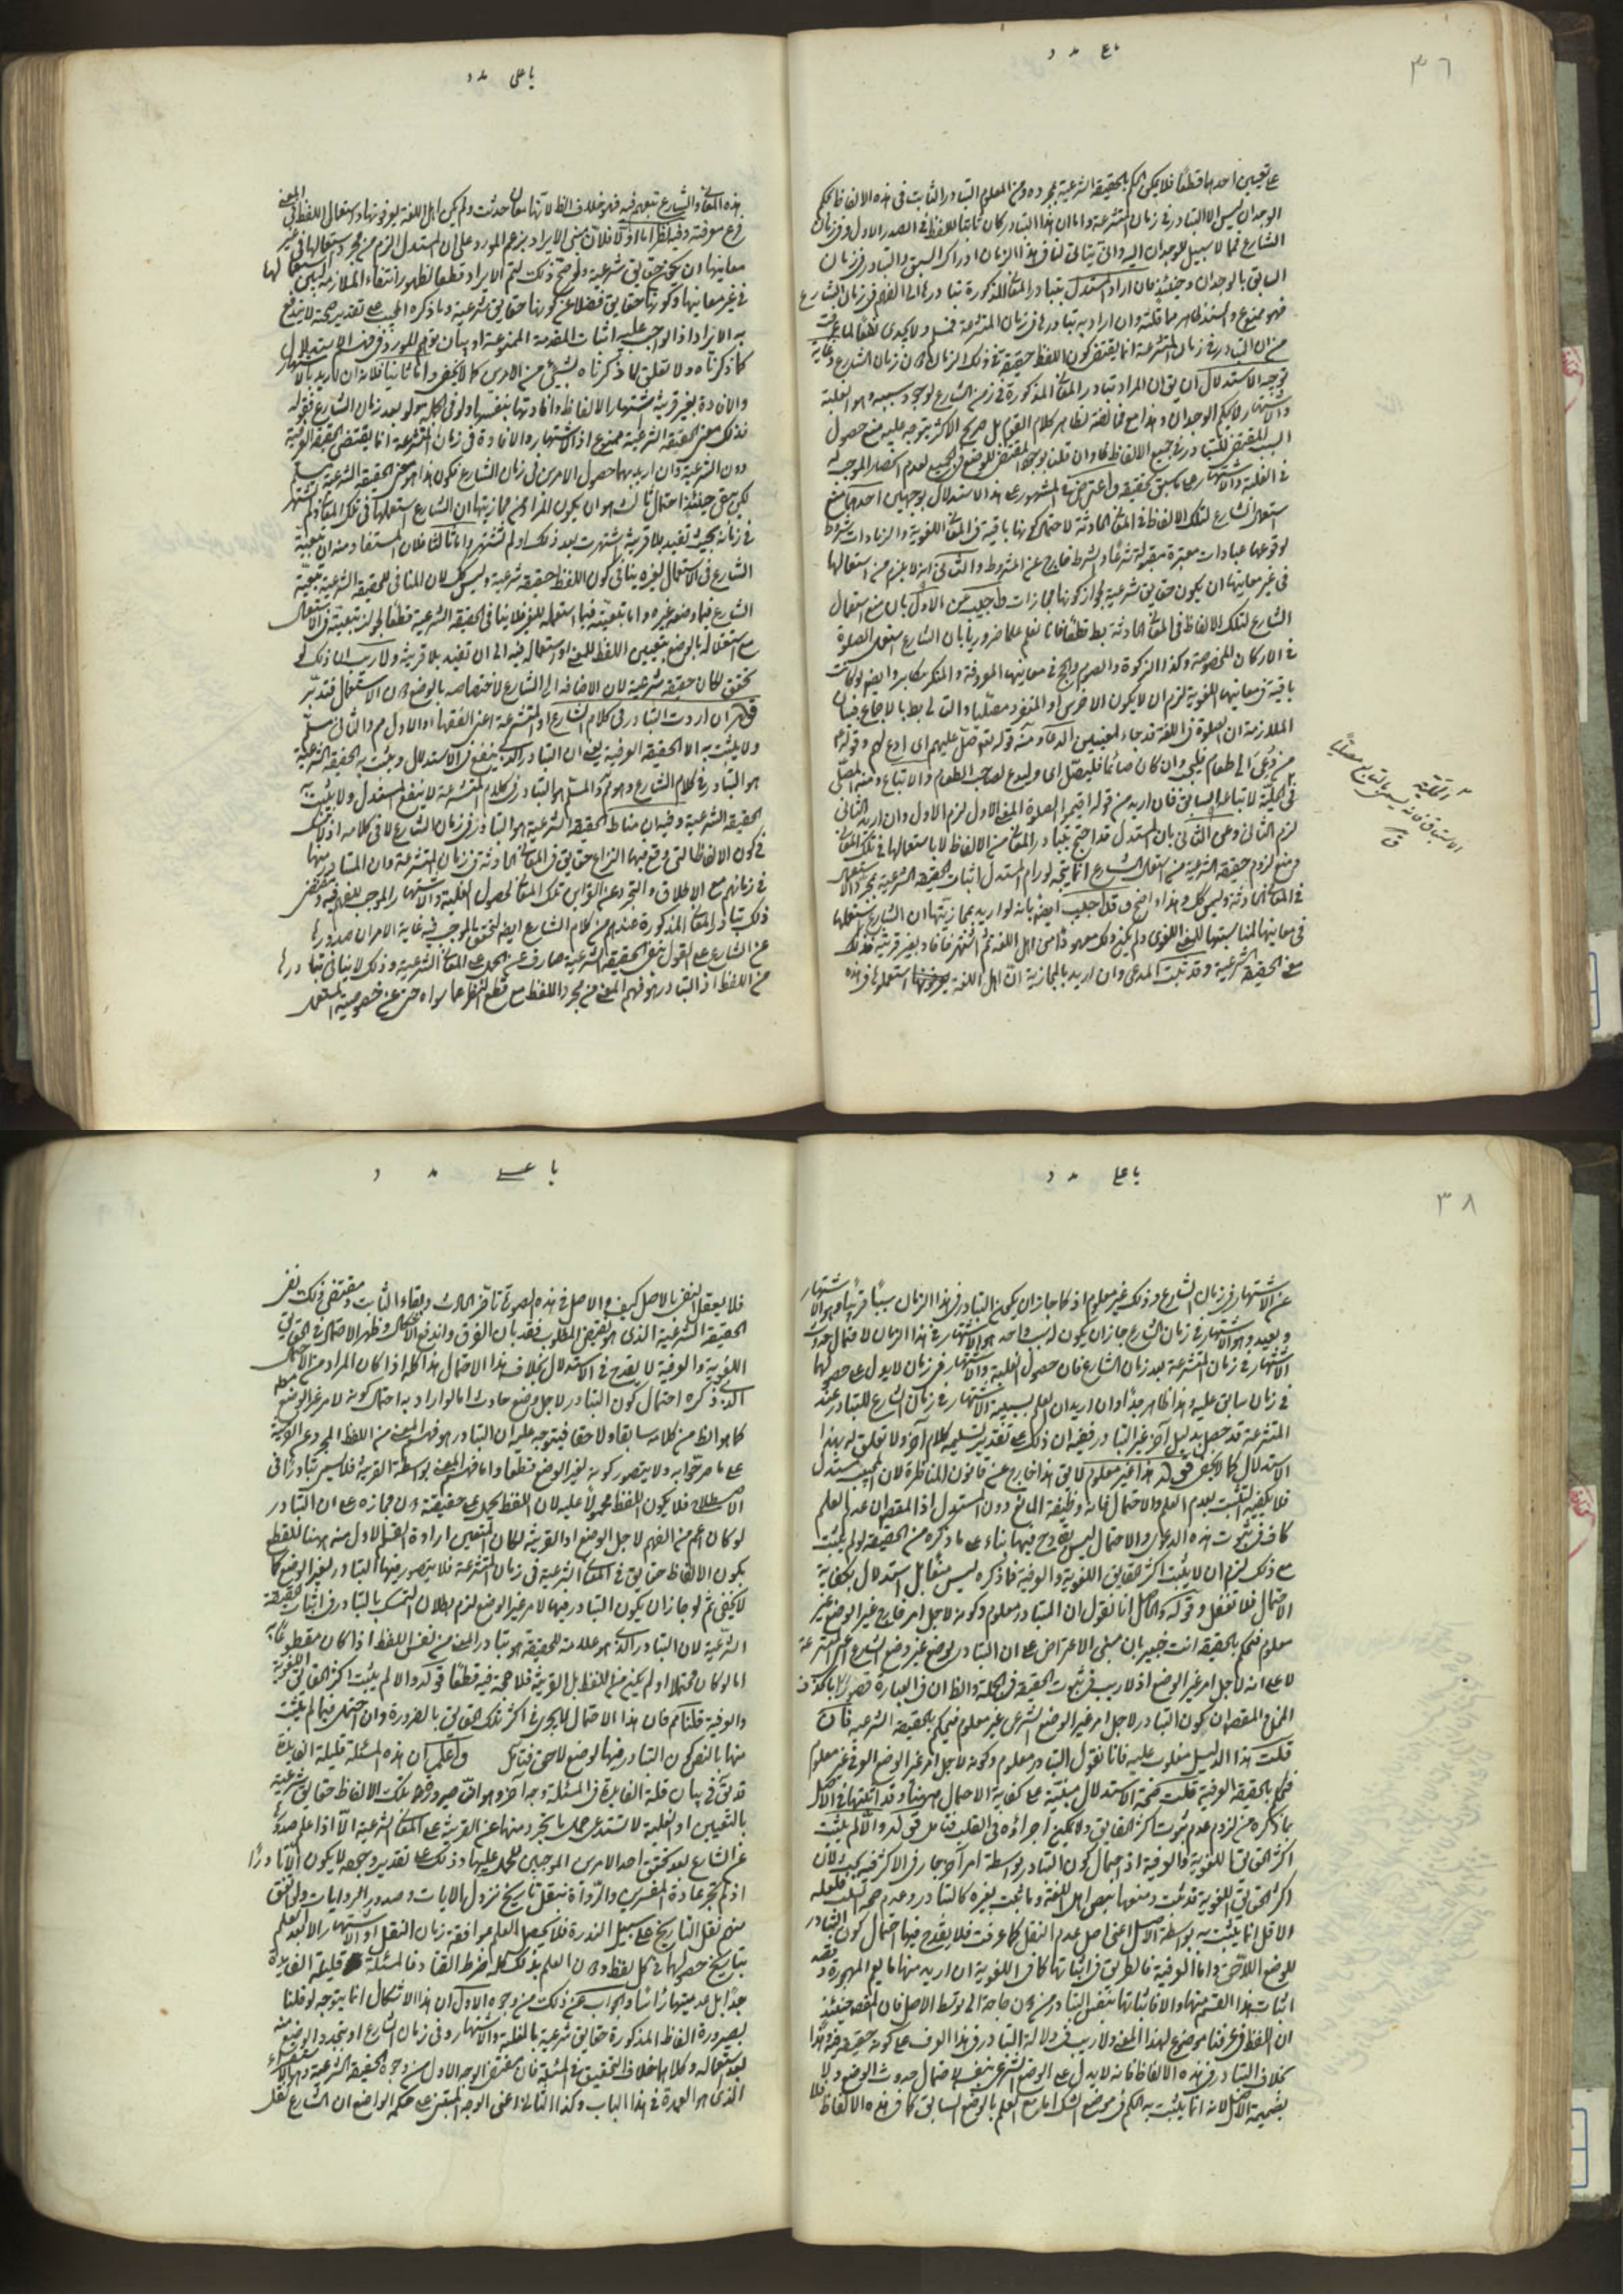 ٣٦
على تعيين احدها قطعا فلا يمكن الحكم بالحقيقة الشرعية بمجرده ومن المعلوم التبادر الثابت في هذه الالفاظ بحكم
الوجدان ليس الا التبادر في زمان المتشرعة واما ان هذا التبادر كان ثابتا للفظ في الصدر الاول وفي زمان
الشارع فما لا سبيل للوجدان اليه
السابق بالوجدان وحينئذ فان اراد المستدل بتبادر المعاني المذكورة تبادرها الى الفهم في زمان الشارع
فهو ممنوع والسند ظاهر مما قلنا وان اراد به تبادرها في زمان المتشرعة فمسلم ولا يجدي نفعا لما عرفت
من ان التبادر في زمان المتشرعة انما يقتضي كون اللفظ حقيقة في ذلك الزمان دون زمان الشارع وغاية
توجيه الاستدلال ان يق ان المراد تبادر المعاني المذكورة في زمن الشارع لوجود سببه وهو الغلبة
والاشتهار بحكم الوجدان وهذا مع مخالفته لظاهر كلام القوم بل صريح الاكثر يتوجه عليه منع حصول
السبب المقتضي للتبادر في جميع الالفاظ
في الغلبة والاشتهار على ما سبق تحقيقه واعترض في المشهور على هذا الاستدلال بوجهين احدهما منع
استعمال الشارع لتلك الالفاظ في المعاني الحادثة لاحتمال كونها باقية في المعاني اللغوية والزيادات شروط
لوقوعها عبادات معتبرة مقبولة شرعا والشرط خارج عن المشروط والثاني انه لا يلزم من استعمالها
في غير معانيها ان يكون حقايق شرعية لجواز كونها مجازات واجيب عن الاول بان منع استعمال
الشارع لتلك الالفاظ في المعاني الحادثة بط قطعا فانا نعلم علما ضروريا بان الشارع استعمل الصلوة
في الاركان المخصوصة وكذا الزكوة والصوم والحج في معانيها المعروفة والمنكر مكابر وايضا لو كانت
باقية في معانيها اللغوية لزم ان لا يكون الاخرس او المنفرد مصليا والتالي بط بالاجماع فبيان
الملازمة ان الصلوة في اللغة قد جاء لمعنيين الدعاء ومنه قوله تع وصل عليهم اي ادع لهم وقوله ع
من دعي الى طعام فليجب وان كان صائما فليصل اي وليدع لصاحب الطعام والاتباع ومنه المصلي
في الحلبة لاتباعه السابق فان اريد من قوله اقيموا الصلوة المعنى الاول لزم الاول وان اريد الثاني
لزم الثاني وعن الثاني بان المستدل قد احتج بتبادر المعاني من الالفاظ لا باستعمالها في تلك المعاني
و منع لزوم حقيقة الشرعية من استعمال الشارع انما يتجه لو رام المستدل اثبات الحقيقة الشرعية بمجرد الاستعمال
في المعاني الحادثة وليس كل وهذا واضح وقد اجيب ايضا بانه لو اريد بمجازيتها ان الشارع استعملها
في معانيها لمناسبتها للمعنى اللغوي ولم يكن ذلك معهودا من اهل اللغة ثم اشتهر فافاد بغير قرينة فذلك
معنى الحقيقة الشرعية وقد ثبت المدعى وان اريد بالمجازية ان اهل اللغة استعملوها في هذه
يا على مدد
هذه المعاني والشارع تبعهم فيه فهو خلاف الظ لانها معان حدثت ولم يكن اهل اللغة يعرفونها واستعمال اللفظ في المعنى
فرع معرفته وفيه نظر اما اولا فلان مبنى الايراد بزعم المورد على ان المستدل الزم من مجرد استعمالها في غير
معانيها ان تكون حقايق شرعية ولو صح ذلك لتم الايراد قطعا لظهور انتفاء الملازمة بين استعمالها
في غير معانيها وكونها حقايق فضلا عن كونها حقايق شرعية وما ذكره المجيب على تقدير صحته لا يندفع
به الايراد اذ الواجب عليه اثبات المقدمة الممنوعة او بيان توهم المورد
كما ذكرناه ولا تعلق لما ذكرناه بشيء من الامرين كما لا يخفى واما ثانيا فلانه ان اريد بالاشتهار
والافادة بغير قرينة اشتهار الالفاظ وافادتها بنفسها ولو في الكل ولو بعد زمان الشارع فقوله
فذلك معنى الحقيقة الشرعية ممنوع اذ الاشتهار والافادة في زمان المتشرعة انما يقتضي الحقيقة العرفية
دون الشرعية وان اريد بهما حصول الامرين في زمان الشارع فكون هذا هو معنى الحقيقة الشرعية مسلم
لكن يبقى حينئذ احتمال ثالث هو ان يكون المراد من مجازيتها ان الشارع استعملها في تلك المعاني ولم تشتهر
في زمانه بحيث تفيد بلا قرينة واشتهرت بعد ذلك او لم تشتهر واما ثالثا فلان المستفاد منه ان تبعية
الشارع في الاستعمال لغيره ينافي كون اللفظ حقيقة شرعية وليس كل لان المنافي للحقيقة الشرعية تبعية
الشارع فيما وضعه غيره واما تبعيته فيما استعمله الغير فلا ينافي الحقيقة الشرعية قطعا لجواز تبعيته في الاستعمال
مع استقلاله بالوضع بتعيين اللفظ للمعنى او استعماله فيه الى ان تفيد بلا قرينة ولا ريب ان ذلك لو
تحقق لكان حقيقة شرعية لان الاضافة الى الشارع لاختصاصه بالوضع دون الاستعمال فتدبر
ان اردت التبادر في كلام الشارع او المتشرعة اعني الفقهاء والاول مم والثاني مسلم
ولا يثبت به الا الحقيقة العرفية يعني ان التبادر الذي ينفع في الاستدلال ويثبت به الحقيقة الشرعية
هو التبادر في كلام الشارع وهو مم والمسلم هو التبادر في كلام المتشرعة لا ينفع المستدل ولا يثبت به
الحقيقة الشرعية وفيه ان مناط الحقيقة الشرعية هو التبادر في زمان الشارع لا في كلامه اذ لا شك
في كون الالفاظ التي وقع فيها النزاع حقايق في المعاني الحادثة في زمان المتشرعة وان المتبادر منها
في زمانهم مع الاطلاق والتجرد عن القراين تلك المعاني لحصول الغلبة والاشتهار الموجب للفهم فيه ومقتضى
ذلك تبادر المعاني المذكورة عندهم من كلام الشارع ايضا لتحقق الموجب فيه غاية الامر ان صدورها
عن الشارع على القول بنفي الحقيقة الشرعية صارف عن الحمل على المعاني الشرعية وذلك لا ينافي تبادرها
من اللفظ اذ التبادر هو فهم المعنى من مجرد اللفظ مع قطع النظر عما سواه حتى عن خصوصية المستعمل
٣٨
يا على مدد
عن الاشتهار في زمان الشارع وذلك غير معلوم اذ كما جاز ان يكون التبادر في هذا الزمان سببا قريبا وهو الاشتهار
وبعيد وهو الاشتهار في زمان الشارع جاز ان يكون له سبب واحد هو الاشتهار في هذا الزمان لاحتمال حدوث
الاشتهار في زمان المتشرعة بعد زمان الشارع فان حصول الغلبة والاشتهار في زمان لا يدل على حصولها
في زمان سابق عليه وهذا ظاهر جدا وان اريد ان العلم بسببية الاشتهار في زمان الشارع للتبادر عند
المتشرعة قد حصل بدليل آخر غير التبادر ففيه ان ذلك على تقدير تسليمه كلام آخر ولا تعلق له بهذا
الاستدلال كما لا يخفى قوله هذا غير معلوم لا يق هذا خارج عن قانون المناظرة لان المجيب مستدل
فلا يكفيه التشبث بعدم العلم والاحتمال فانه وظيفة المانع دون المستدل اذ المقصود ان عدم العلم
كاف في ثبوت هذه الدعوى والاحتمال ليس بقادح فيها بناء على ما ذكره من الحقيقة ولو لم يثبت
مع ذلك لزم ان لا يثبت اكثر الحقايق اللغوية والعرفية فما ذكره ليس مقابل استدلال بكفاية
الاحتمال فلا تغفل وقوله والحاصل انا نقول ان المتبادر معلوم وكونه لاجل امر خارج غير الوضع غير
معلوم فنحكم بالحقيقة انت خبير بان مبنى الاعتراض على ان التبادر لوضع غير وضع الشارع اعني المتشرعة
لا على انه لاجل امر غير الوضع اذ لا ريب في ثبوت الحقيقة في الجملة والظ ان في العبارة قصورا
المخل المقصود ان كون التبادر لاجل امر غير الوضع الشرعي غير معلوم فيحكم بالحقيقة الشرعية فان
قلت هذا الدليل مقلوب عليه فانا نقول التبادر معلوم وكونه لاجل امر غير الوضع العرفي غير معلوم
فنحكم بالحقيقة العرفية قلت صحة الاستدلال مبنية على كفاية الاحتمال هيهنا وقد اثبتها في الاصل
بما ذكره من لزوم عدم ثبوت اكثر الحقايق ولا يمكن اجراؤه في القلب فتامل قوله والا لم يثبت
اكثر الحقايق اللغوية والعرفية اذ احتمال كون التبادر بواسطة امر آخر جار في الاكثر فيه بحث لان
اكثر الحقايق اللغوية قد ثبتت وضعها بنص اهل اللغة وما ثبت بغيره كالتبادر وعدم صحة السلب فلعله
الاقل انما يثبت به بواسطة الاصل اعني اصل عدم النقل كما عرفت فلا يقدح فيها احتمال كون التبادر
للوضع اللاحق واما العرفية فالطريق في اثباتها كما في اللغوية ان اريد منها ما يعم المهجورة وقد
اثبات هذا القسم منها والا فاثباتها بنفس التبادر من دون حاجة الى توسط الاصل فان المقصود حينئذ
ان اللفظ في عرفنا موضوع لهذا المعنى ولا ريب في دلالة التبادر في هذا العرف على كونه حقيقة فيه وهذا
بخلاف التبادر في هذه الالفاظ فانه لا يدل على الوضع الشرعي بنفسه لاحتمال حدوث الوضع ولا
بضميمة الاصل لانه انما يثبت به الحكم في موضع الشك اما مع العلم بالوضع السابق كما في هذه الالفاظ فلا
يا على مدد
فلا يعقل النفي بالاصل كيف والاصل في هذه الصورة تاخر الحادث وبقاء الثابت ومقتضى ذلك نفي
الحقيقة الشرعية الذي هو نقيض المطلوب فقد بان الفرق واندفع الاشكال وظهر ان الاحتمال في الحقايق
اللغوية والعرفية لا يقدح في الاستدلال بخلاف هذا الاحتمال هذا كله اذا كان المراد من الاحتمال
الذي ذكره احتمال كون التبادر لاجل وضع حادث اما لو اراد به احتمال كونه لامر غير الوضع
كما هو الظ من كلامه سابقا ولاحقا فيتوجه عليه ان التبادر هو فهم المعنى من اللفظ المجرد عن القرينة
على ما صرحوا به ولا يتصور كونه لغير الوضع قطعا واما فهم المعنى بواسطة القرينة فلا يسمى تبادرا في
الاصطلاح فلا يكون اللفظ محمولا عليه لان اللفظ يحمل على حقيقته دون مجازه على ان التبادر
لو كان اعم من الفهم لاجل الوضع او القرينة لكان المتعين ارادة المعنى الاول منه هنا للقطع
بكون الالفاظ حقايق في المعاني الشرعية في زمان المتشرعة فلا يتصور فيها التبادر لغير الوضع كما
لا يخفى ثم لو جاز ان يكون التبادر فيها لامر غير الوضع لزم بطلان التمسك بالتبادر في اثبات الحقيقة
الشرعية لان التبادر الذي هو علامة للحقيقة هو تبادر المعنى من نفس اللفظ اذا كان مقطوعا به
اما لو كان محتملا او لم يكن من اللفظ بل القرينة فلا حجة فيه قطعا قوله والا لم يثبت اكثر الحقايق اللغوية
والعرفية قلنا مم فان هذا الاحتمال لا يجري في اكثر تلك الحقايق بالضرورة وان احتمل فيما لم يثبت
منها بالنص كون التبادر فيها لوضع لاحق فتامل واعلم ان هذه المسئلة قليلة الفايدة
قد يق في بيان قلة الفايدة في المسئلة وجه آخر وهو ان صيرورة تلك الالفاظ حقايق شرعية
بالتعيين او الغلبة لا تستدعي حمل ما تجرد منها عن القرينة على المعاني الشرعية الا اذا علم صدوره
عن الشارع بعد تحقق احد الامرين الموجبين للحمل عليها وذلك على تقدير وجوده لا يكون الا نادرا
اذ لم تجر عادة المفسرين والرواة بنقل تاريخ نزول الايات وصدور الروايات ولو اتفق
منهم نقل التاريخ على سبيل الندرة فلا يحصل العلم بموافقة زمان النقل او الاشتهار الا بعد العلم
بتاريخ حصولها في كل لفظ ودون العلم بذلك كله خرط القتاد فالمسئلة قليلة الفايدة
جدا بل عديمتها رأسا والجواب عن ذلك من وجوه الاول ان هذا الاشكال انما يتوجه لو قلنا
بصيرورة الالفاظ المذكورة حقايق شرعية بالغلبة والاشتهار وفي زمان الشارع او بتجدد الوضع منه
بعد استعماله وكلاهما خلاف التحقيق في المسئلة فان مقتضى الوجه الاول من وجوه الحقيقة الشرعية وهو الاستقراء
الذي هو العمدة في هذا الباب وكذا الثاني اعني الوجه المبتني على حكمة الواضع ان الشارع نقل